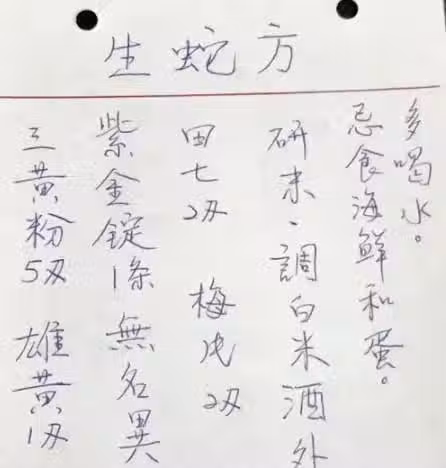 生蛇方
三黃粉5刄 雄黃1刄
紫金錠1條 無名異
田七2刄 梅片2刄
研末，調白米酒外
忌食海鮮和蛋。
多喝水。